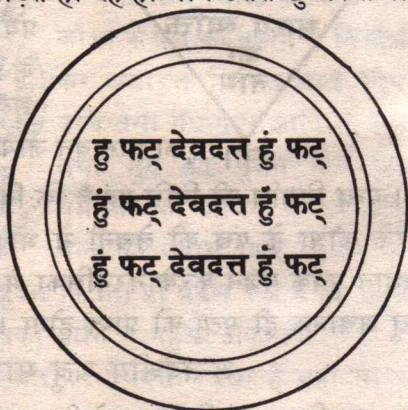 हु फट् देवदत्त हुं फट्
हुं फट् देवदत्त हुँ फट्
हुं फट् देवदत्त हुं फट्